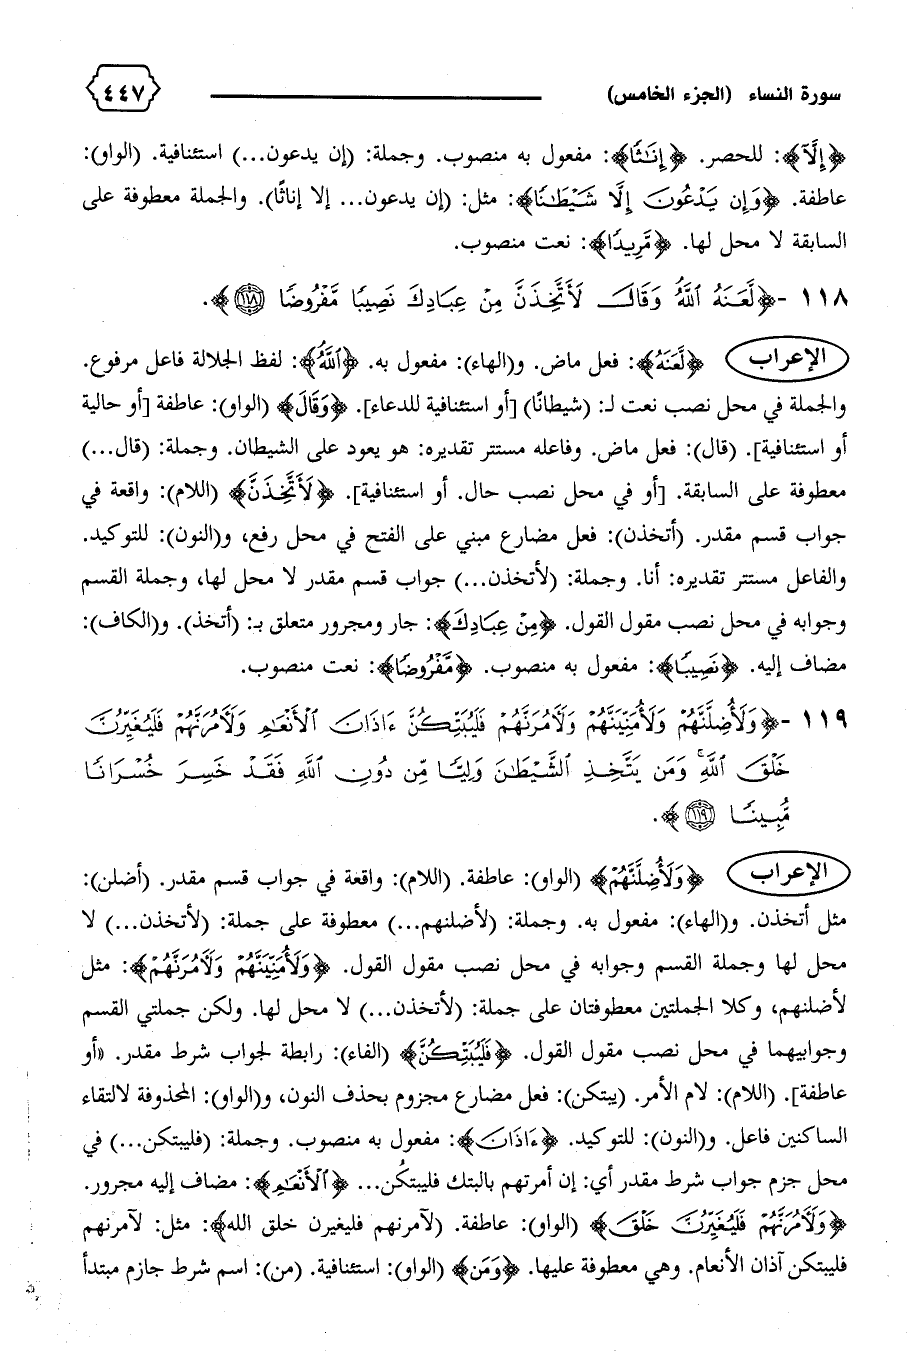 سورة النساء (الجزء الخامس) ٤٤٧
﴿إِلَّآ﴾: للحصر. ﴿إِنَٰثًا﴾: مفعول به منصوب. وجملة: (إن يدعون...) استئنافية. (الواو):
عاطفة. ﴿وَإِن يَدْعُونَ إِلَّا شَيْطَٰنًا﴾: مثل: (إن يدعون... إلا إناثًا). والجملة معطوفة على
السابقة لا محل لها. ﴿مَّرِيدًا﴾: نعت منصوب.
١١٨ -﴿لَّعَنَهُ ٱللَّهُ وَقَالَ لَأَتَّخِذَنَّ مِنْ عِبَادِكَ نَصِيبًا مَّفْرُوضًا ١١٨﴾.
الإعراب ﴿لَّعَنَهُ﴾: فعل ماض. و(الهاء): مفعول به. ﴿ٱللَّهُ﴾: لفظ الجلالة فاعل مرفوع.
والجملة في محل نصب نعت لـ: (شيطانًا) [أو استئنافية للدعاء]. ﴿وَقَالَ﴾ (الواو): عاطفة [أو حالية
أو استئنافية]. (قال): فعل ماض. وفاعله مستتر تقديره: هو يعود على الشيطان. وجملة: (قال...)
معطوفة على السابقة. [أو في محل نصب حال. أو استئنافية]. ﴿لَأَتَّخِذَنَّ﴾ (اللام): واقعة في
جواب قسم مقدر. (أتخذن): فعل مضارع مبني على الفتح في محل رفع، و(النون): للتوكيد.
والفاعل مستتر تقديره: أنا. وجملة: (لأتخذن...) جواب قسم مقدر لا محل لها، وجملة القسم
وجوابه في محل نصب مقول القول. ﴿مِنْ عِبَادِكَ﴾: جار ومجرور متعلق بـ: (أتخذ). و(الكاف):
مضاف إليه. ﴿نَصِيبًا﴾: مفعول به منصوب. ﴿مَّفْرُوضًا﴾: نعت منصوب.
١١٩ -﴿وَلَأُضِلَّنَّهُمْ وَلَأُمَنِّيَنَّهُمْ وَلَأَمُرَنَّهُمْ فَلَيُبَتِّكُنَّ ءَاذَانَ ٱلْأَنْعَٰمِ وَلَأَمُرَنَّهُمْ فَلَيُغَيِّرُنَّ
خَلْقَ ٱللَّهِ ۚ وَمَن يَتَّخِذِ ٱلشَّيْطَٰنَ وَلِيًّا مِّن دُونِ ٱللَّهِ فَقَدْ خَسِرَ خُسْرَانًا
مُّبِينًا ١١٩﴾.
الإعراب ﴿وَلَأُضِلَّنَّهُمْ﴾ (الواو): عاطفة. (اللام): واقعة في جواب قسم مقدر. (أضلن):
مثل أتخذن. و(الهاء): مفعول به. وجملة: (لأضلنهم...) معطوفة على جملة: (لأتخذن...) لا
محل لها وجملة القسم وجوابه في محل نصب مقول القول. ﴿وَلَأُمَنِّيَنَّهُمْ وَلَأَمُرَنَّهُمْ﴾: مثل
لأضلنهم، وكلا الجملتين معطوفتان على جملة: (لأتخذن...) لا محل لها. ولكن جملتي القسم
وجوابيهما في محل نصب مقول القول. ﴿فَلَيُبَتِّكُنَّ﴾ (الفاء): رابطة لجواب شرط مقدر. «أو
عاطفة]. (اللام): لام الأمر. (يبتكن): فعل مضارع مجزوم بحذف النون، و(الواو): المحذوفة لالتقاء
الساكنين فاعل. و(النون): للتوكيد. ﴿ءَاذَانَ﴾: مفعول به منصوب. وجملة: (فليبتكن...) في
محل جزم جواب شرط مقدر أي: إن أمرتهم بالبتك فليبتكُن... ﴿ٱلْأَنْعَٰمِ﴾: مضاف إليه مجرور.
﴿وَلَأَمُرَنَّهُمْ فَلَيُغَيِّرُنَّ خَلْقَ﴾ (الواو): عاطفة. (لآمرنهم فليغيرن خلق الله﴾: مثل: لآمرنهم
فليبتكن آذان الأنعام. وهي معطوفة عليها. ﴿وَمَن﴾ (الواو): استئنافية. (من): اسم شرط جازم مبتدأ